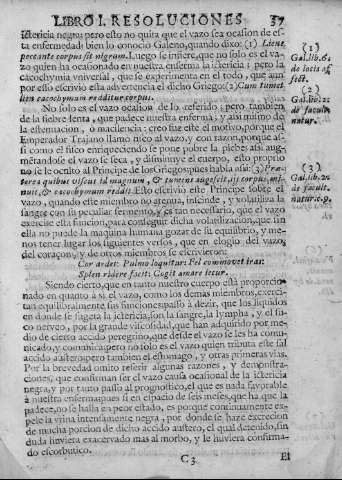 LIBRO I. RESOLUCIONES 37
ictericia negra; pero esto no quita que el vazo sea ocasion de es-
ta enfermedad; bien lo conocio Galeno, quando dixo: (1) Liene
pectante corpus fit nigrum. Luego se infiere, que no solo es el va-
zo quien ha ocasionado en nuestra enferma la ictericia; pero la
cacochymia vniversal, que se experimenta en el todo, que aun
por esso escriviò esta advertencia el dicho Griego: (2) Cum tumet
lien cacochymum redditur corpus.
No solo es el vazo ocasion de lo referido; pero tambien
de la fiebre lenta, que padece nuestra enferma; y asi mismo de
la estenuacion, ò macilencia: creo fue este el motivo, porque el
Emperador Trajano llamò fisco al vazo, y con razon, porque as-
si como el fisco enriqueciendo se pone pobre la plebe; asi aug-
mentandose el vazo se seca, y disminuye el cuerpo, esto proprio
no se le ocultò al Principe de los Griegos, pues habla asi: (3)
quibus viscus id magnum, & tumens augescit, ijs corpus
& cacochymum reddit. Esto escriviò este Principe sobre el
vazo, quando este miembro no atenua, inscinde, y volatiliza la
sangre con su peculiar fermento, y es tan necessario, que el vazo
exercite esta funcion, para conseguir dicha volatilizacion, que sin
ella no puede la maquina humana gozar de su equilibrio, y me-
nos tener lugar los siguientes versos, que en elogio del vazo,
del coraçon, y de otros miembros se escrivieron.
Cor ardet: Pulmo loquitur: Fel commovet iras:
Splen ridere facit: Cogit amare iecur.
Siendo cierto, que en tanto nuestro cuerpo està proporcio-
nado en quanto à si el vazo, como los demàs miembros, exerci-
tan equilibralmente sus funciones; passo à dezir, que los liquidos
en donde se sugeta la ictericia, son la sangre, la lympha, y el su-
co nerveo, por la grande viscosidad, que han adquirido por me-
dio de cierto accido peregrino, que desde el vazo se les ha comu-
nicado, y comunica; pero no solo es el vazo quien tributa este tal
accido austero; pero tambien el estomago, y otras primeras vias.
Por la brevedad omito referir algunas razones, y demonstra-
ciones, que confirman ser el vazo causa ocasional de la ictericia
negra, y por tanto passo al prognostico, el que es nada favorable
à nuestra enferma; pues si en espacio de seis meses, que ha que la
padece, no se halla en peor estado, es porque continuamente ex-
pele la vrina intensamente negra, por donde se haze excrecion
de mucha porcion de dicho accido austero, el qual detenido, sin
duda huviera exacervado mas al morbo, y le huviera confirma-
do escorbutico.
C 3 El
(1)
Gal. lib. 6.
de locis af-
fect.
(2)
Gal. lib. 2.
de facult.
natur.
(3)
Gal. lib. 2.
de facult.
natur. c. 9.